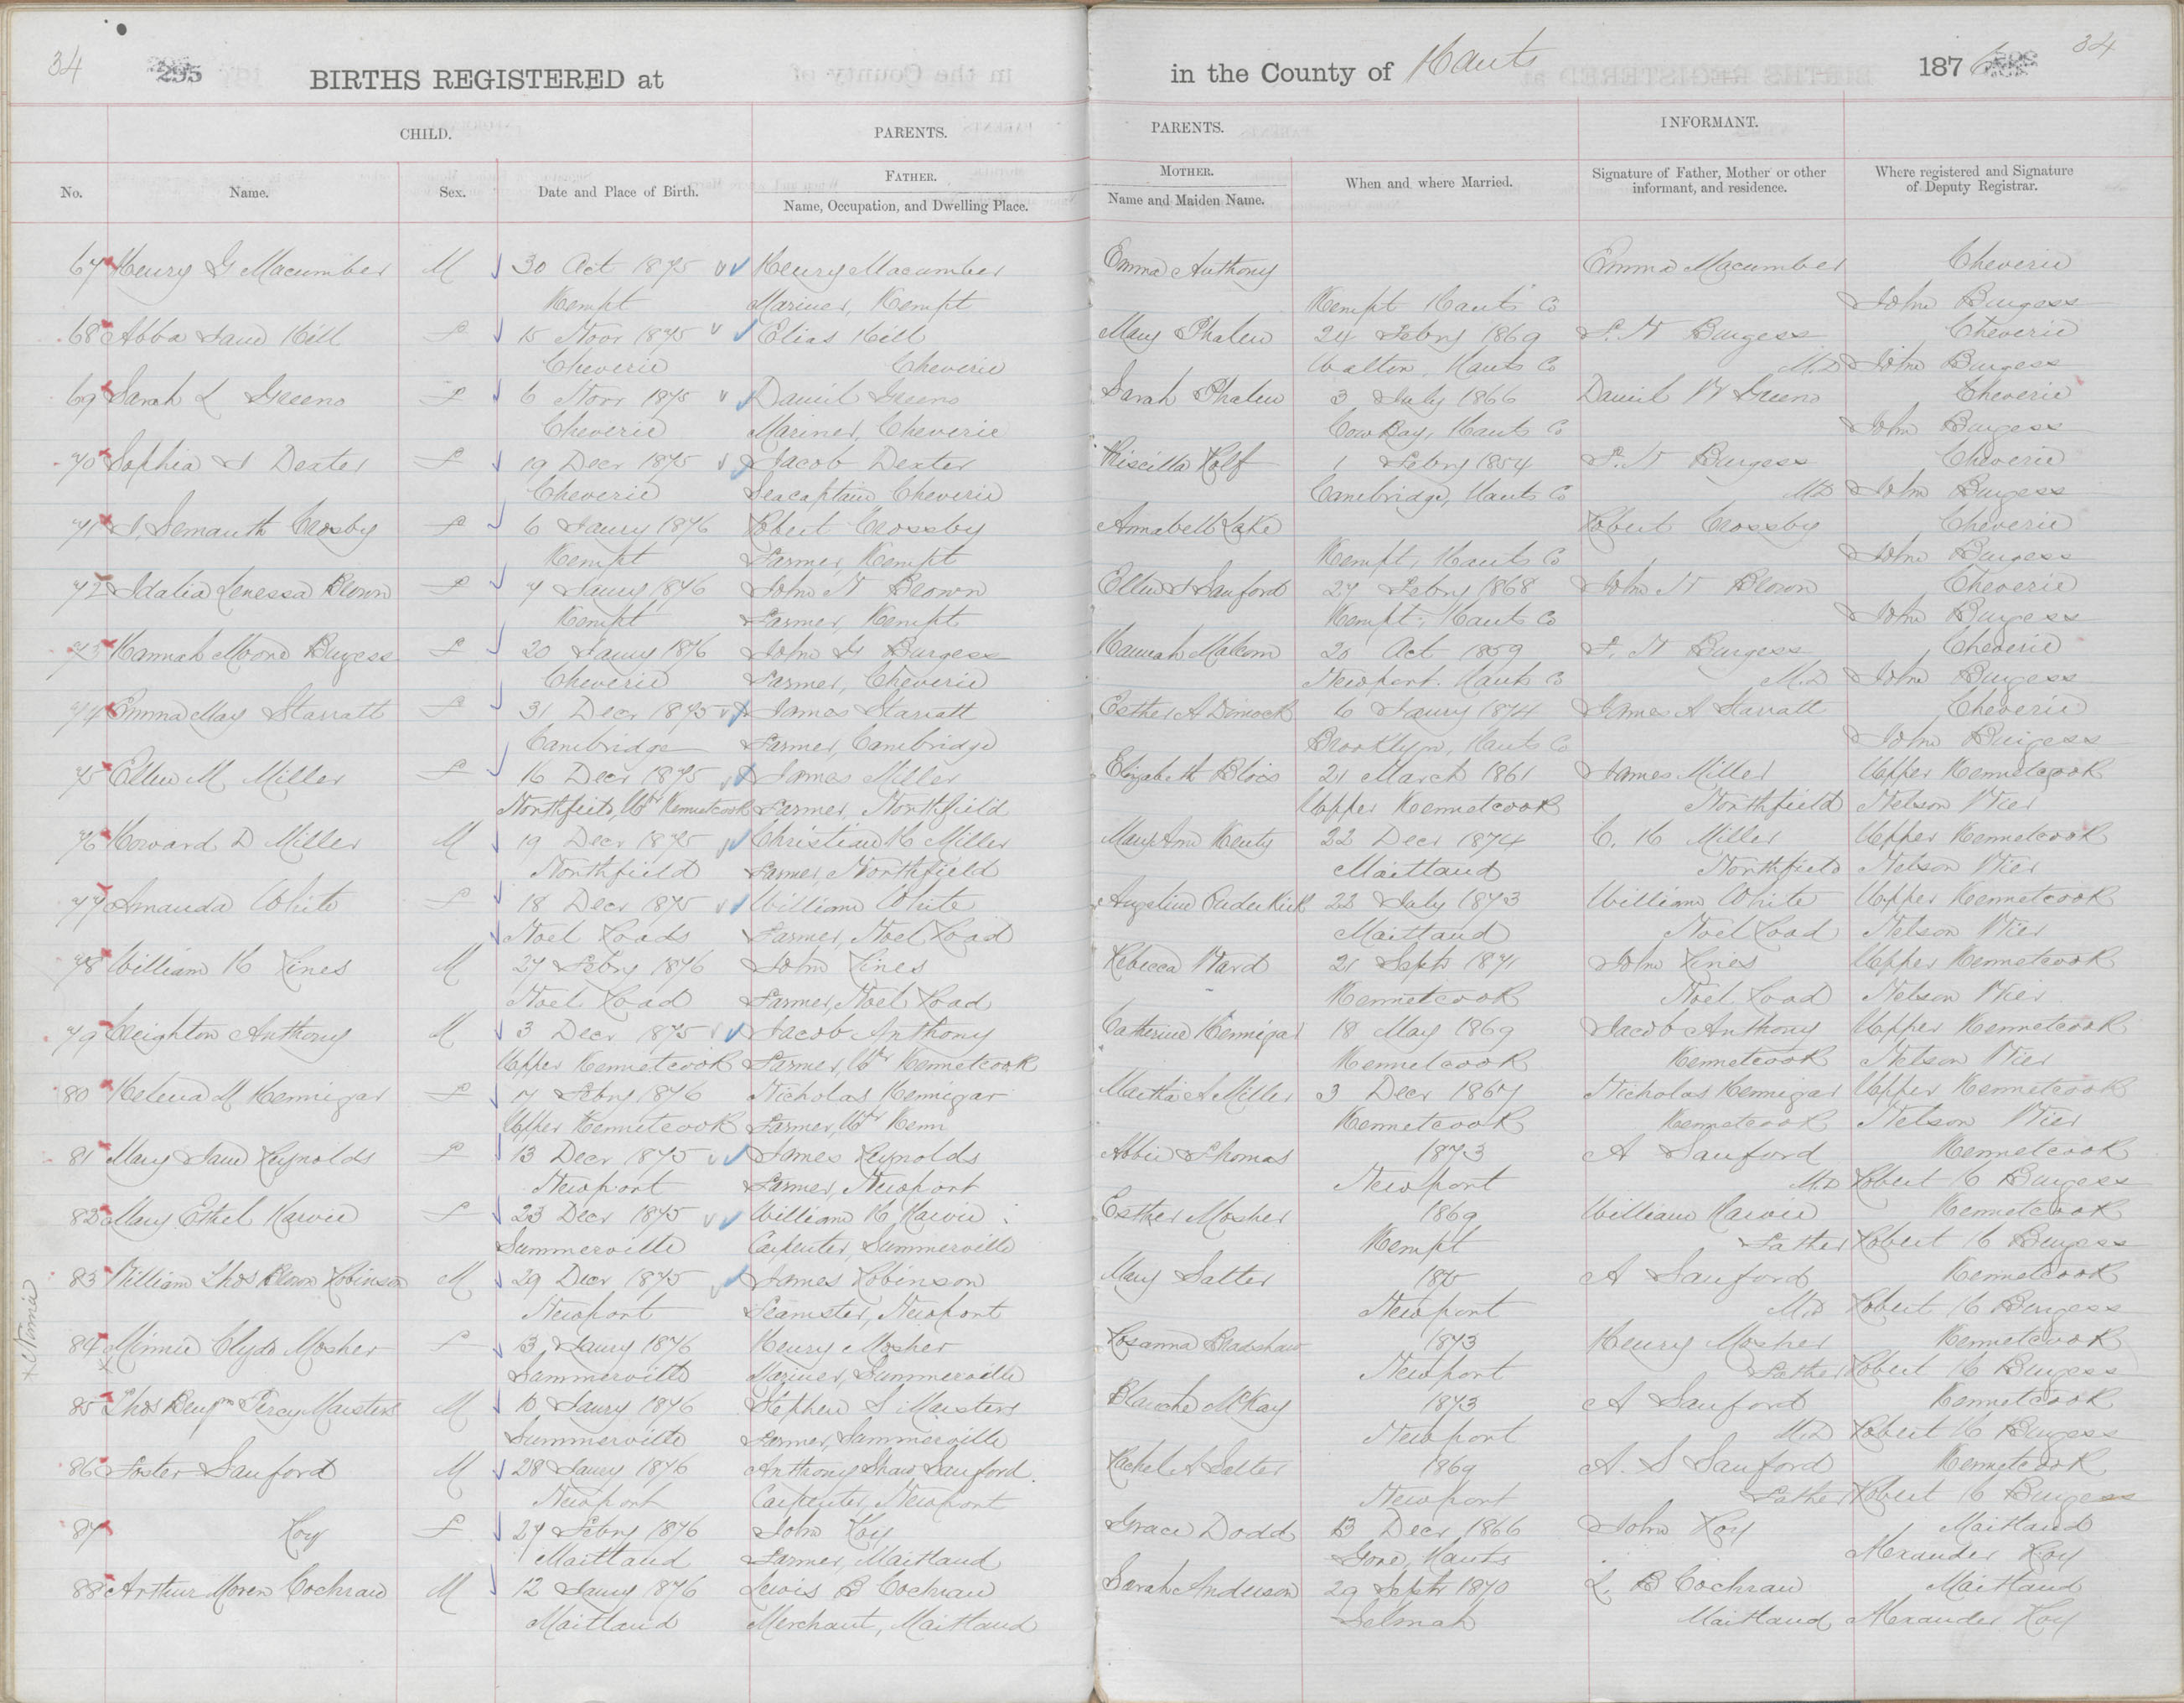 34
295
BIRTHS REGISTERED at
in the County of Hants
187 6
34
CHILD.
PARENTS.
PARENTS.
INFORMANT.
No.
Name.
Sex.
Date and Place of Birth.
FATHER.
Name, Occupation, and Dwelling Place.
MOTHER.
Name and Maiden Name.
When and where Married.
Signature of Father, Mother or other
informant, and residence.
Where registered and Signature
of Deputy Registrar.
67 Henry G Macumber M 30 Oct 1875 Henry Macumber Emma Anthony Emma Macumber Cheverie
Kempt Mariner, Kempt Kempt Hants Co John Burgess
68 Abba Jane Hill F 15 Novr 1875 Elias Hill Mary Phalen 24 Febry 1869 F. N Burgess Cheverie
Cheverie Cheverie Walton, Hants Co M.D John Burgess
69 Sarah L Greeno F 6 Novr 1875 Daniel Greeno Sarah Phalen 3 July 1866 Daniel W Greeno Cheverie
Cheverie Mariner, Cheverie Cow Bay, Hants Co John Burgess
70 Sophia Dexter F 19 Decr 1875 Jacob Dexter Priscilla Rolf 1 Febry 1854 F. N Burgess Cheverie
Cheverie Seacaptain Cheverie Cambridge, Hants Co M.D John Burgess
71 Crosby F 6 Jany 1876 Robert Crossby Annabell Lake Robert Crossby Cheverie
Kempt Farmer, Kempt Kempt, Hants Co John Burgess
72 Idalia Lenessa Brown F 7 Jany 1876 John N Brown Ellen S Sanford 27 Febry 1868 John N Brown Cheverie
Kempt Farmer, Kempt Kempt, Hants Co John Burgess
73 Hannah Moore Burgess F 20 Jany 1876 John G Burgess Hannah Malcom 20 Oct 1859 F. N Burgess Cheverie
Cheverie Farmer, Cheverie Newport. Hants Co M.D John Burgess
74 Emma May Starratt F 31 Decr 1875 James Starratt Esther A Dimock 6 Jany 1874 James A Starratt Cheverie
Cambridge Farmer, Cambridge Brooklyn, Hants Co John Burgess
75 Ellen M Miller F 16 Decr 1875 James Miller Elizabeth Blois 21 March 1861 James Miller Upper Kennetcook
Northfield, Upr Kennetcook Farmer, Northfield Upper Kennetcook Northfield Nelson Wier
76 Howard D Miller M 19 Decr 1875 Christian H Miller Mary Ann Henty 22 Decr 1874 C. H Miller Upper Kennetcook
Northfield Farmer, Northfield Maitland Northfield Nelson Wier
77 Amanda White F 18 Decr 1875 William White Angeline Ouderkirk 22 July 1873 William White Upper Kennetcook
Noel Road Farmer, Noel Road Maitland Noel Road Nelson Wier
78 William H Hines M 27 Febry 1876 John Hines Rebecca Ward 21 Septr 1871 John Hines Upper Kennetcook
Noel Road Farmer, Noel Road Kennetcook Noel Road Nelson Wier
79 Creighton Anthony M 3 Decr 1875 Jacob Anthony Catherine Hennigar 18 May 1869 Jacob Anthony Upper Kennetcook
Upper Kennetcook Farmer, Upr Kennetcook Kennetcook Kennetcook Nelson Wier
80 Helena M Hennigar F 17 Febry 1876 Nicholas Hennigar Martha A Miller 3 Decr 1867 Nicholas Hennigar Upper Kennetcook
Upper Kennetcook Farmer, Upr Kenn Kennetcook Kennetcook Nelson Wier
81 Mary Jane Reynolds F 13 Decr 1875 James Reynolds Abbie Thomas 1873 A Sanford Kennetcook
Newport Farmer, Newport Newport M.D Robert H Burgess
82 Mary Ethel Harvie F 23 Decr 1875 William H Harvie Esther Mosher 1869 William Harvie Kennetcook
Summerville Carpenter, Summerville Kempt Father Robert H Burgess
83 William Thos Brown Robinson M 29 Decr 1875 James Robinson Mary Salter 1875 A Sanford Kennetcook
Newport Teamster, Newport Newport M.D Robert H Burgess
+ Normia
84 Minnie Clyde Mosher F 13 Jany 1876 Henry Mosher Rosanna Bradshaw 1873 Henry Mosher Kennetcook
Summerville Mariner, Summerville Newport Father Robert H Burgess
85 Thos Benjmn Percy Masters M 10 Jany 1876 Stephen S Masters Blanche McKay 1873 A Sanford Kennetcook
Summerville Farmer, Summerville Newport M.D Robert H Burgess
86 Foster Sanford M 28 Jany 1876 Anthony Shaw Sanford Rachel A Salter 1869 A. S Sanford Kennetcook
Newport Carpenter, Newport Newport Father Robert H Burgess
87 Roy F 27 Febry 1876 John Roy Grace Dodd 13 Decr 1866 John Roy Maitland
Maitland Farmer, Maitland Gore, Hants Alexander Roy
88 Arthur Moren Cochran M 12 Jany 1876 Lewis B Cochran Sarah Anderson 29 Septr 1870 L. B Cochran Maitland
Maitland Merchant, Maitland Selmah Maitland Alexander Roy